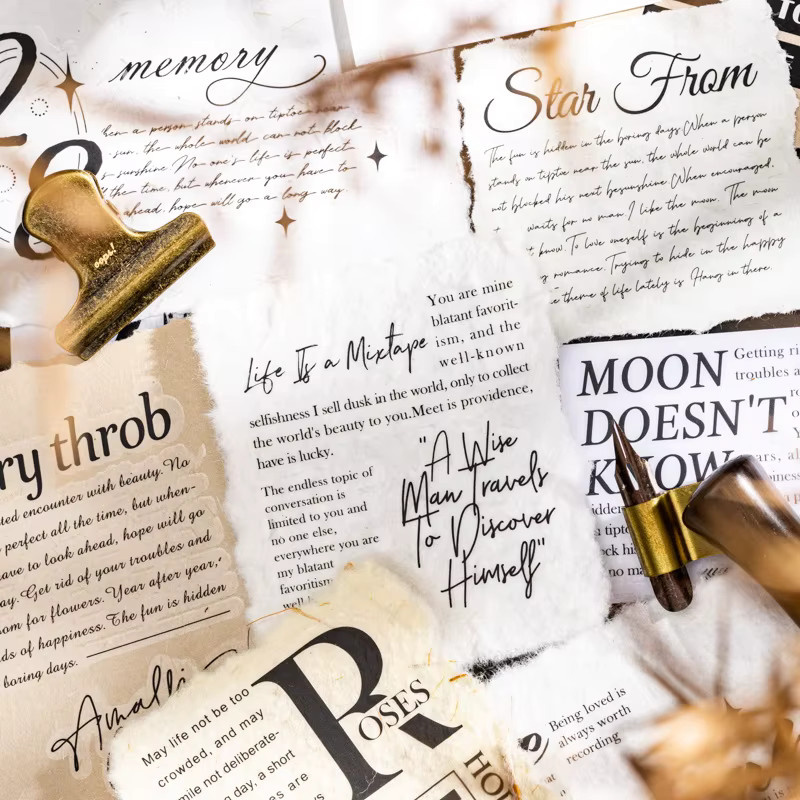 memory
hen a person stands on tiptoe near
sun, the whole world can not block
s sunshine. No one's life is perfect
the time, but whenever you have to
ahead, hope will go a long way.
oops!
Star From
The fun is hidden in the boring days. When a person
stands on tiptoe near the sun, the whole world can be
not blocked his next besunshine. When encouraged,
waits for no man. I like the moon. The moon
t know. To love oneself is the beginning of a
romance. Trying to hide in the happy
theme of life lately is Hang in there.
Life Is a Mixtape
You are mine
blatant favorit-
ism, and the
well-known
selfishness I sell dusk in the world, only to collect
the world's beauty to you.Meet is providence,
have is lucky.
The endless topic of
conversation is
limited to you and
no one else,
everywhere you are
my blatant
favoritism
"A Wise
Man Travels
To Discover
Himself"
MOON
DOESN'T
KNOW
Getting ri
troubles a
ears, al
ry throb
ted encounter with beauty. No
perfect all the time, but when-
ave to look ahead, hope will go
ay. Get rid of your troubles and
om for flowers. Year after year,
ds of happiness. The fun is hidden
boring days.
ROSES
May life not be too
crowded, and may
mile not deliberate-
ng day, a short
es are
HO
Being loved is
always worth
recording